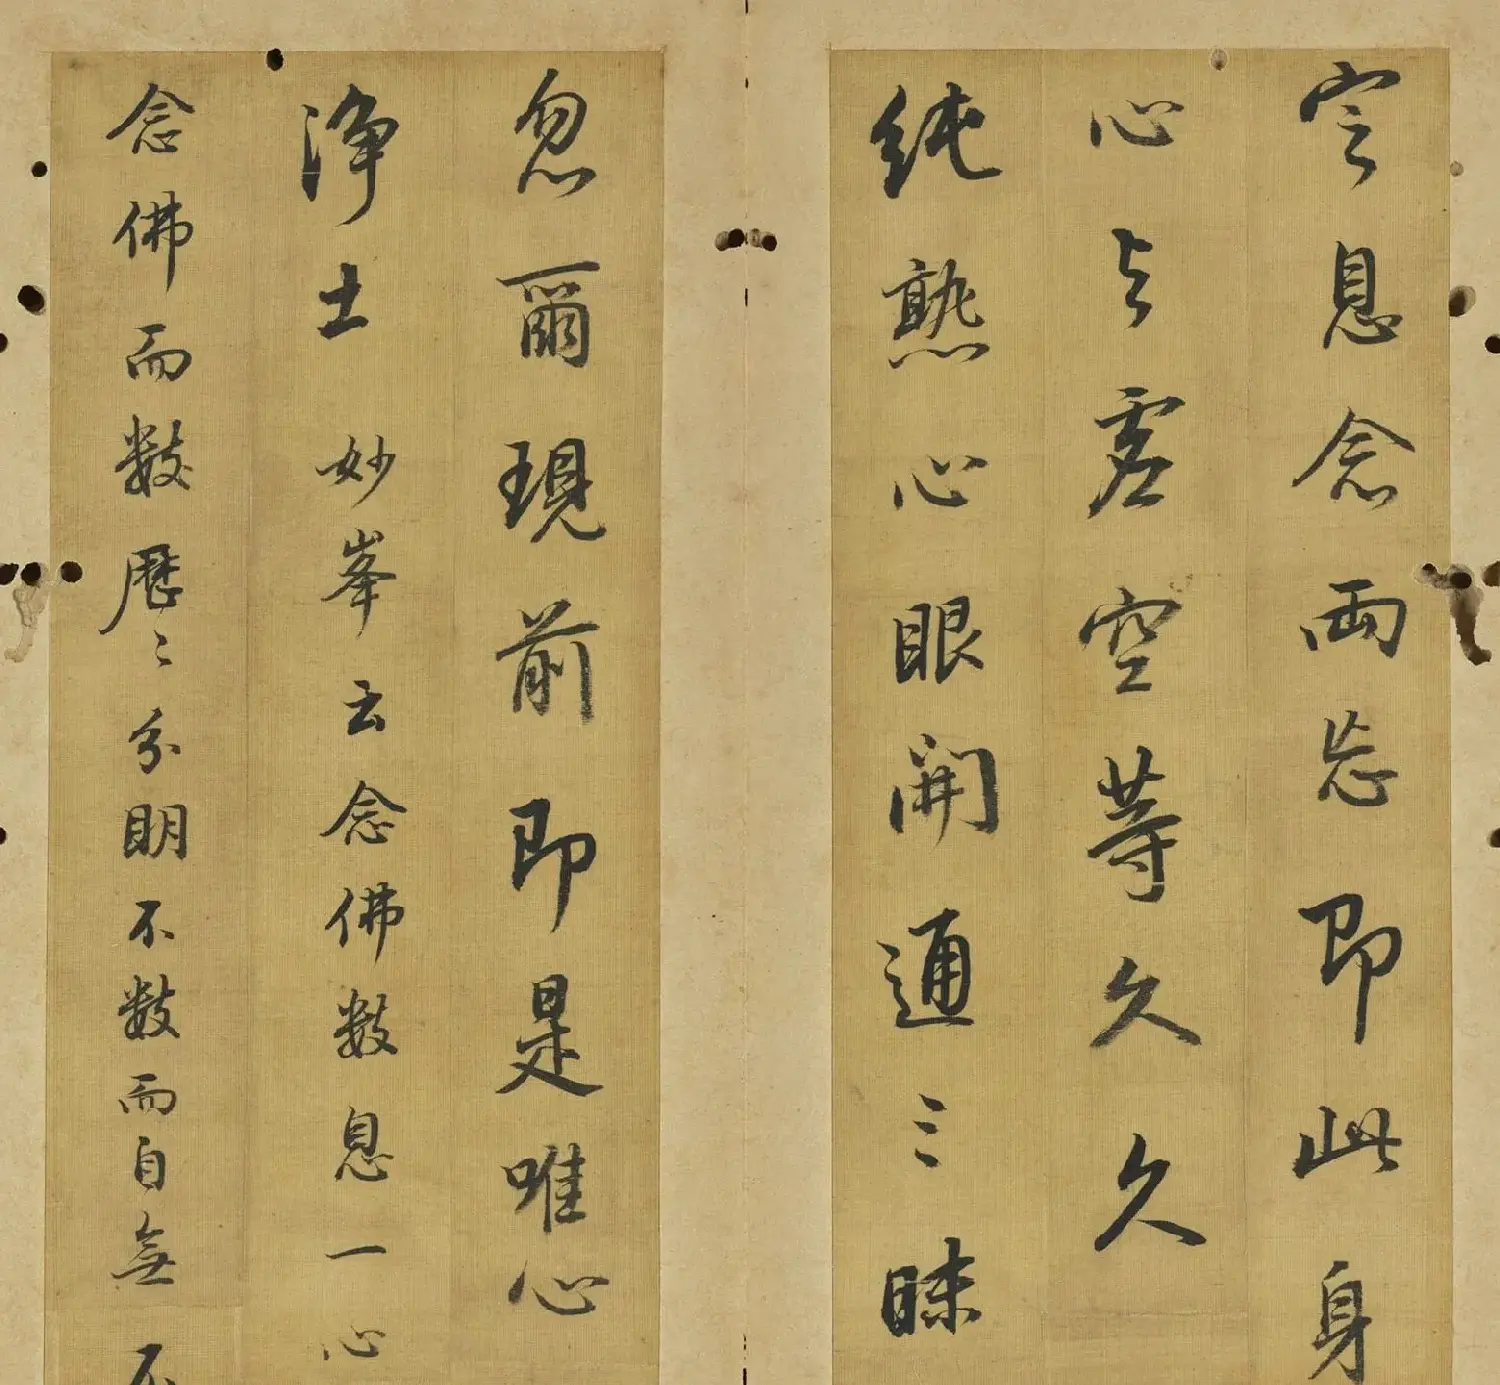 定息念兩忘即此身
心與虛空等久久
純熟心眼開通三昧
忽爾現前即是唯心
淨土 妙峯云念佛數息一心
念佛而數歷歷分明不數而自無不